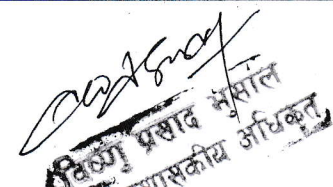 विष्णु प्रसाद भुसाल
प्रशासकीय अधिकृत